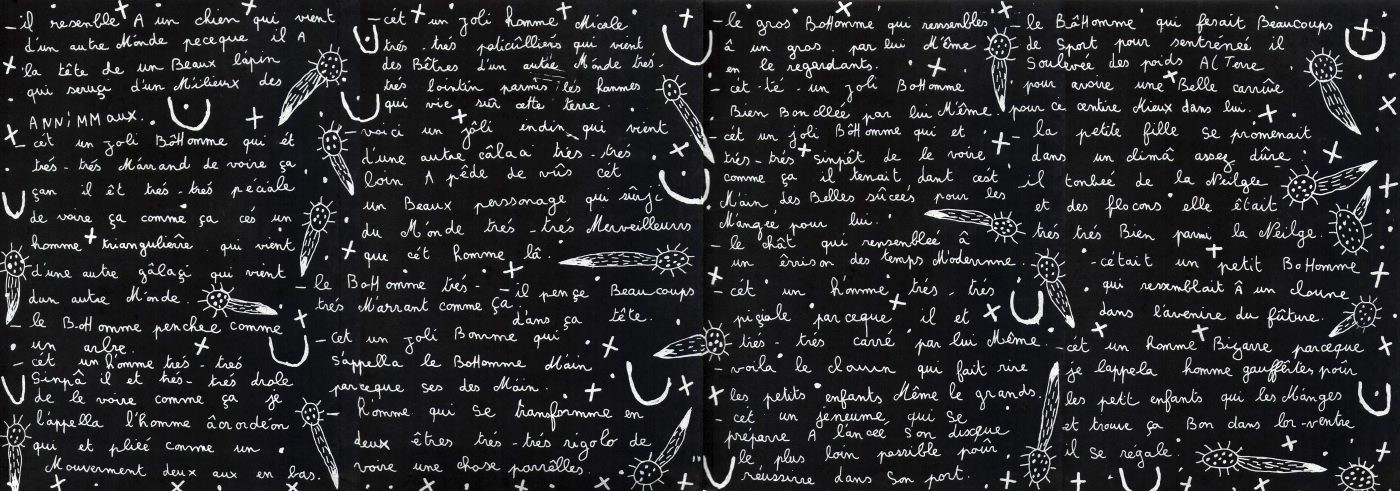 - il resenble A un chien qui vient
d'un autre Monde peceque il A
la tête de un Beaux lapin
qui seruçi d'un Milieux des
ANNiMMaux.
- cét un joli BôHomme qui ét
trés - trés Marrand de voire ça
çan il êt trés - trés péciale
de voire ça comme ça cés un
homme triangulierre qui vient
d'une autre gâlaçi qui vient
dun autre Monde.
- le BoHomme penchee comme
un arbre.
- cét un homme trés - trés
Sinpâ il et trés - trés drole
de le voire comme ça je
l'appella l'homme âcordéon
qui et plieé comme un
Mouverment deux aux en bas.
- cét un joli homme Micale
trés - trés policûlliérs qui vient
des Bêtres d'un autre Monde trés -
trés lointin parmis les hommes
qui vie sur cette terre.
- voici un jôli indin, qui vient
d'une autre câlaa trés - trés
loin A pêde de vûs cét
un Beaux personage qui sûrji
du Monde trés - trés Merveilleurs
que cét homme lâ.
- le BoHomme trés -
trés Marrant comme ça.
- il pençe Beaucoups
d'ans ça tête.
- Cet un joli Bomme qui
s'appella le BoHomme Main
parceque ses des Main.
- homme qui se transformme en
deux êtres trés - trés rigolo de
voire une chose parrelles.
- le gros BoHomme qui ressenbles
â un gros par lui M'ême
en le regardants.
- cét té un joli BoHomme
Bien Bonolleé par lui M'ême.
- cét un joli BôHomme qui et
trés - trés sinpêt de le voire
comme ça il tenait dant cest
Main des Belles sûceés pour les
Mangée pour lui.
- le chât qui rensenbleé â
un êrrison des temps Moderrnne.
- cét un homme trés, trés
piçiale parceque il et
trés - trés carré par lui Même.
- voila le clounn qui fait rire
les petits enfants Même le grands.
- cet un jeneume qui se
préparre A l'anceé son disccque
le plus loin possible pour
réussirre dans son port.
- le BâHomme qui fesait Beaucoups
de Sport pour sentréneé il
Soulevee des poids AlTerre
pour avoire une Belle carrûre
pour ce centire Mieux dans lui.
- la petite fille se promenait
dans un climâ assez dûre.
il tonbeé de la Neilgee
et des flocons elle êtait
trés trés Bien parmi la Neilge.
- cétait un petit BoHomme
qui ressmblait â un cloune
dans l'avenire du fûture.
- cét un homme Bizarre parceque
je lappela homme gauffértes pour
les petit enfants qui les Manges
et trouve ça Bon dans lor-ventre
il se régale.